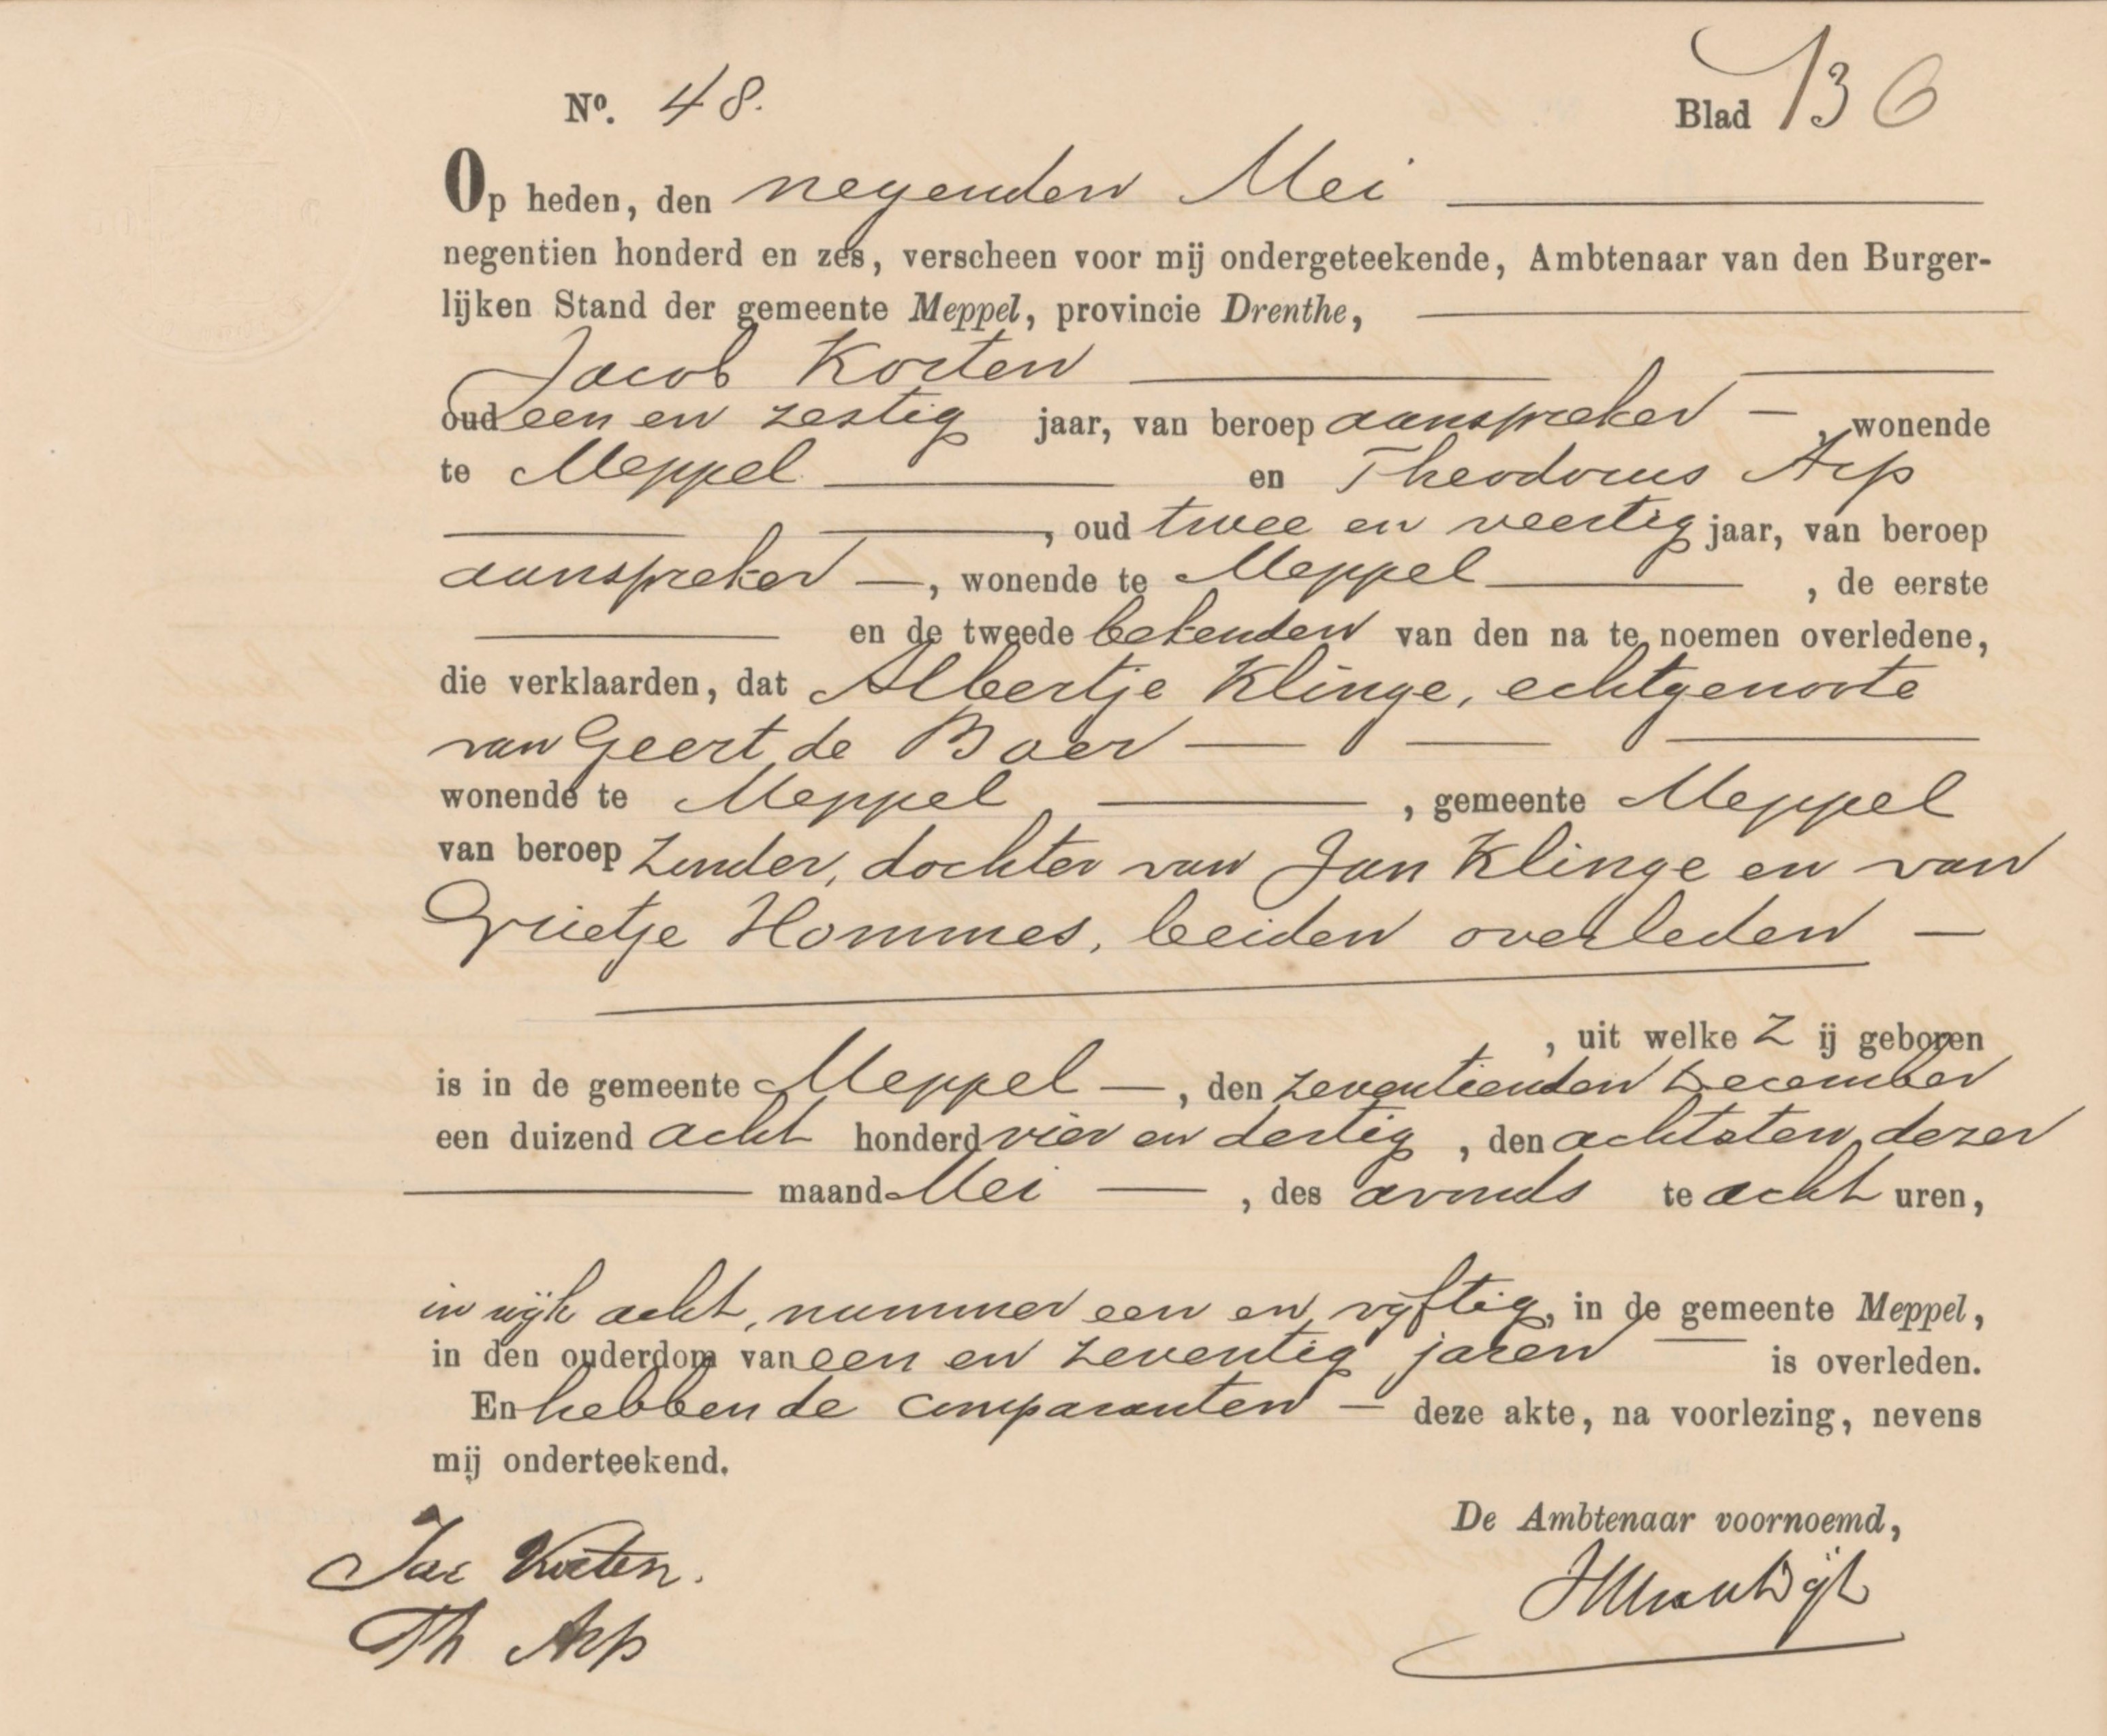 Nº. 48. Blad 136
Op heden, den negenden Mei
negentien honderd en zes, verscheen voor mij ondergeteekende, Ambtenaar van den Burger-
lijken Stand der gemeente Meppel, provincie Drenthe,
Jacob Korten
oud een en zestig jaar, van beroep aanspreker —, wonende
te Meppel en Theodorus Arp
, oud twee en veertig jaar, van beroep
aanspreker —, wonende te Meppel , de eerste
en de tweede bekenden van den na te noemen overledene,
die verklaarden, dat Albertje Klinge, echtgenoote
van Geert de Boer
wonende te Meppel , gemeente Meppel
van beroep zonder, dochter van Jan Klinge en van
Grietje Hommes, beiden overleden —
, uit welke Z ij geboren
is in de gemeente Meppel —, den zeventienden December
een duizend acht honderd vier en dertig , den achtsten dezer
maand Mei — , des avonds te acht uren,
in wijk acht, nummer een en vijftig, in de gemeente Meppel,
in den ouderdom van een en zeventig jaren — is overleden.
En hebben de comparanten — deze akte, na voorlezing, nevens
mij onderteekend.
De Ambtenaar voornoemd,
Jac Korten.
Th Arp